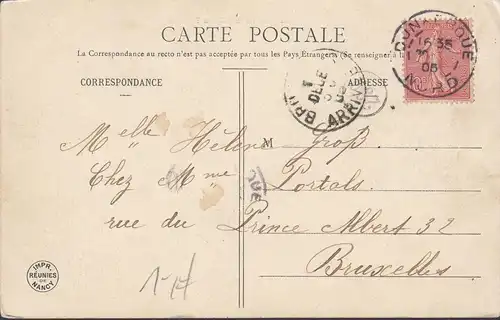 CARTE POSTALE
La Correspondance au recto n'est pas acceptée par tous les Pays Étrangers (Se renseigner à la
CORRESPONDANCE
ADRESSE
16 35
05
ARRIV
M
Melle Hélène Grop
Chez Mme Portals
rue du Prince Albert 32
Bruxelles
IMPR. RÉUNIES DE NANCY